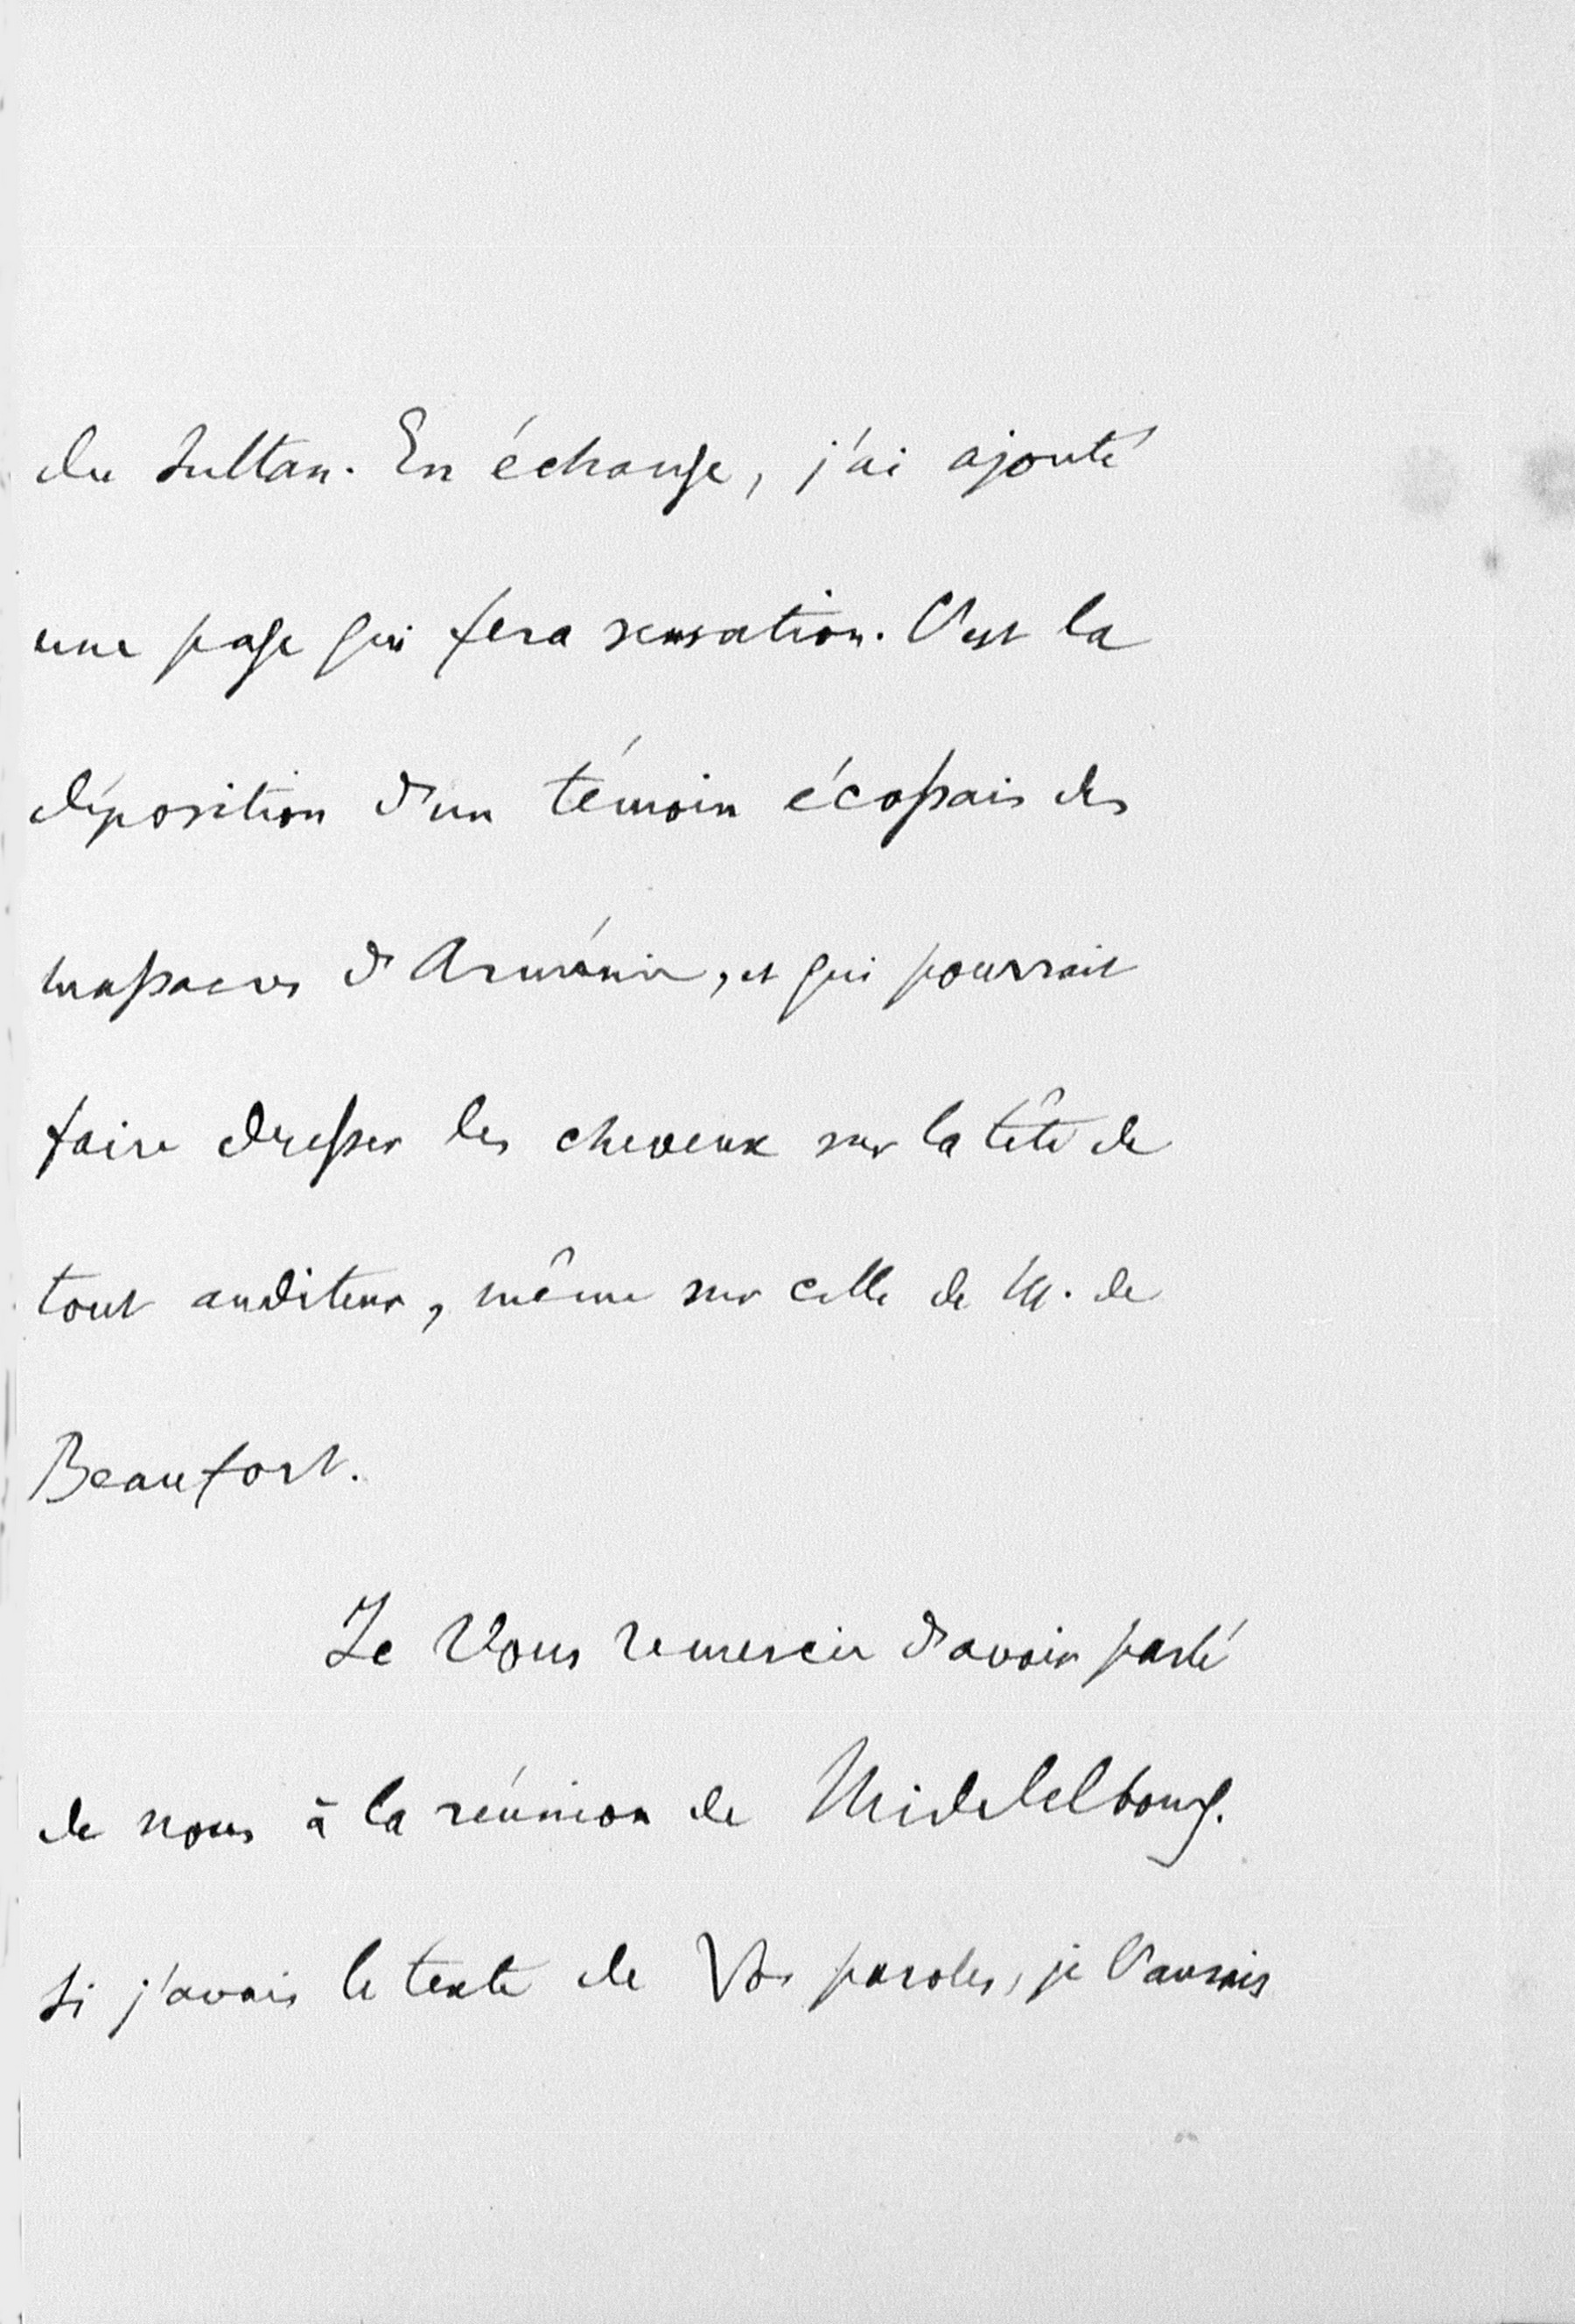 du Sultan. En échange, j'ai ajouté
une page qui fera sensation. C'est la
déposition d'un témoin écossais des
massacres d'Arménie, et qui pourrait
faire dresser les cheveux sur la tête de
tout auditeur, même sur celle de M. de
Beaufort.
Je Vous remercie d'avoir parlé
de nous à la réunion de Middelbourg.
Si j'avais le texte de Vos paroles, je l'aurais